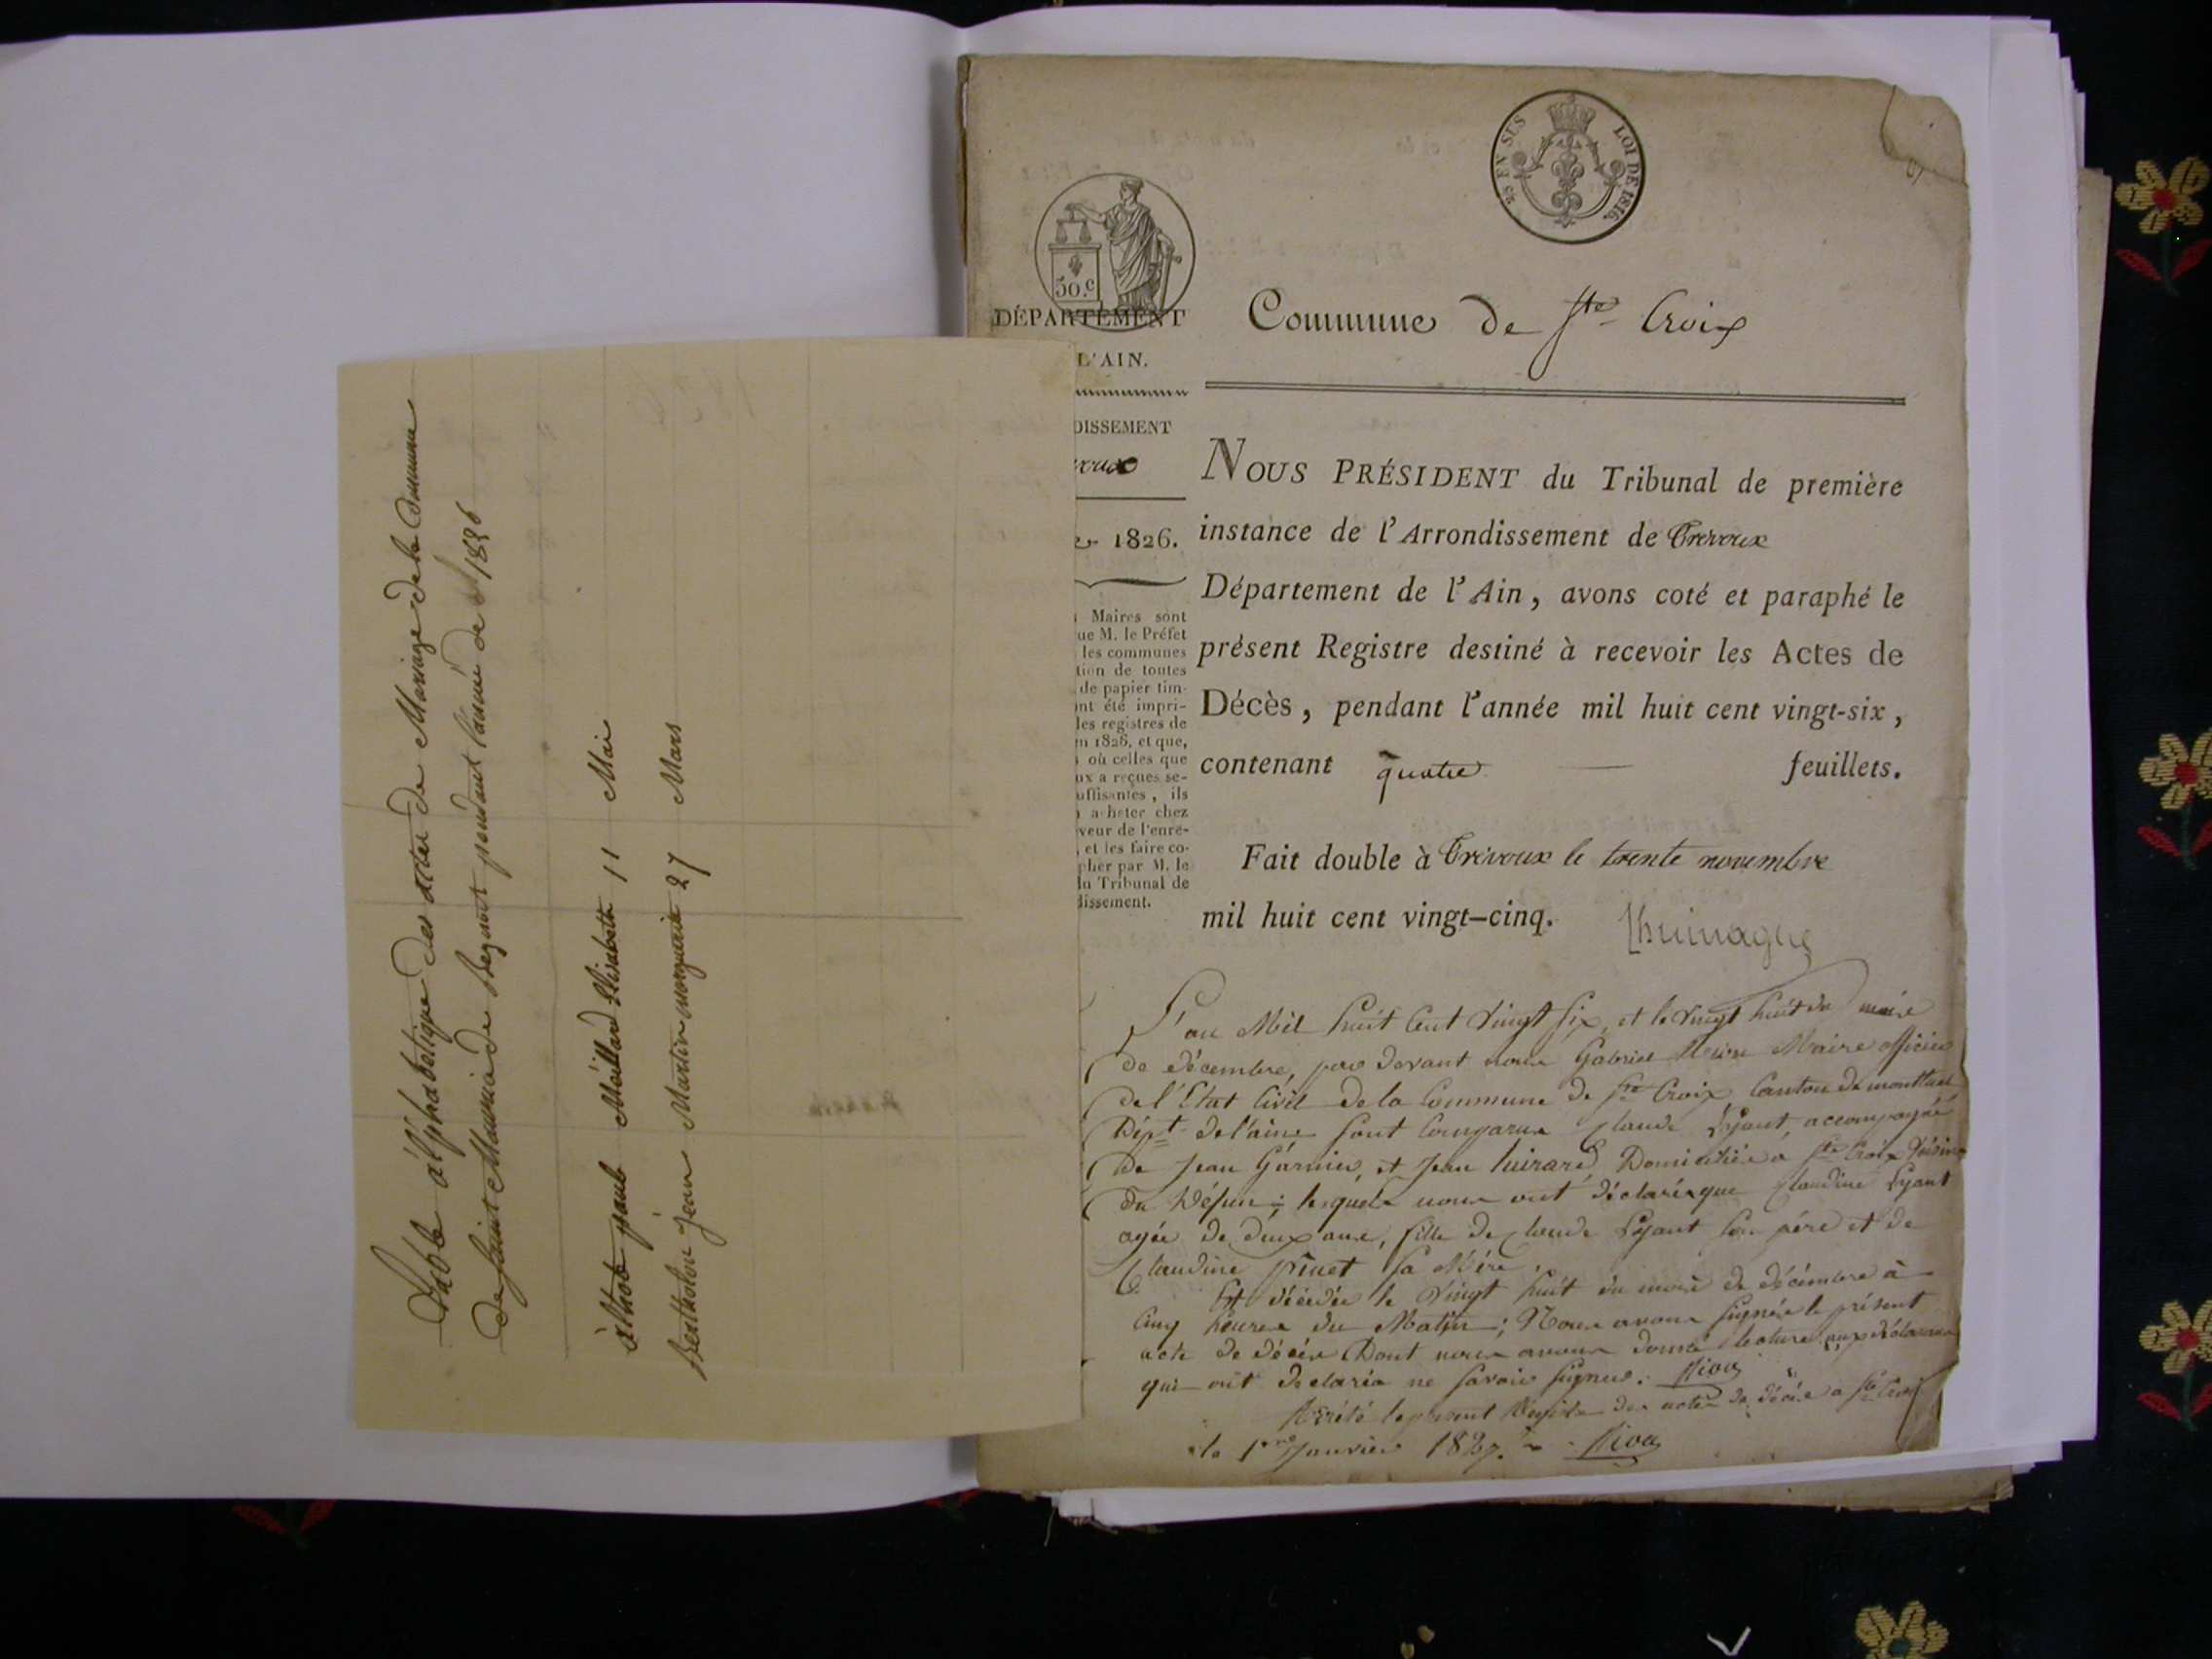 Table alphabétique des actes de Mariage de la Commune
de Saint Maurice de Beynost pendant l'année de 1826
althob paul Meillard Elisabeth 11 Mai
Bertholon Jean Martin marguerite 27 Mars
50.c
25 EN SUS LOI DE 1816.
DÉPARTEMENT
L'AIN.
DISSEMENT
voux
1826.
Maires sont
ue M. le Préfet
les communes
tion de toutes
de papier tim-
nt été impri-
les registres de
n 1826, et que,
où celles que
ux a reçues se-
uffisantes, ils
a heter chez
veur de l'enre-
, et les faire co-
pher par M. le
du Tribunal de
dissement.
Commune de Ste Croix
NOUS PRÉSIDENT du Tribunal de première
instance de l'Arrondissement de Trévoux
Département de l'Ain, avons coté et paraphé le
présent Registre destiné à recevoir les Actes de
Décès, pendant l'année mil huit cent vingt-six,
contenant quatre feuillets.
Fait double à Trévoux le trente novembre
mil huit cent vingt-cinq.
L'an Mil huit Cent Vingt Six, et le Vingt huit du mois
de décembre, par devant nous Gabriel Maire officier
de l'Etat Civil de la Commune de Ste Croix, Canton de montluel
Dépt de l'ain sont Comparus Claude accompagné
de Jean Garnier, et Jean Domiciliés a Ste Croix Voisins
du Défun; lesquels nous ont déclarés que Claudine
agée de deux ans, fille de Claude son père et de
Claudine pinet sa Mère.
Est décédée le Vingt huit du mois de décembre à
Cinq heures du Matin; Nous avons signés le présent
acte de décès Dont nous avons donné lecture aux déclarans
qui ont declarés ne savoir signer.
Arrêté le present Registre des actes de décès a Ste Croix
le 1er Janvier 1827.